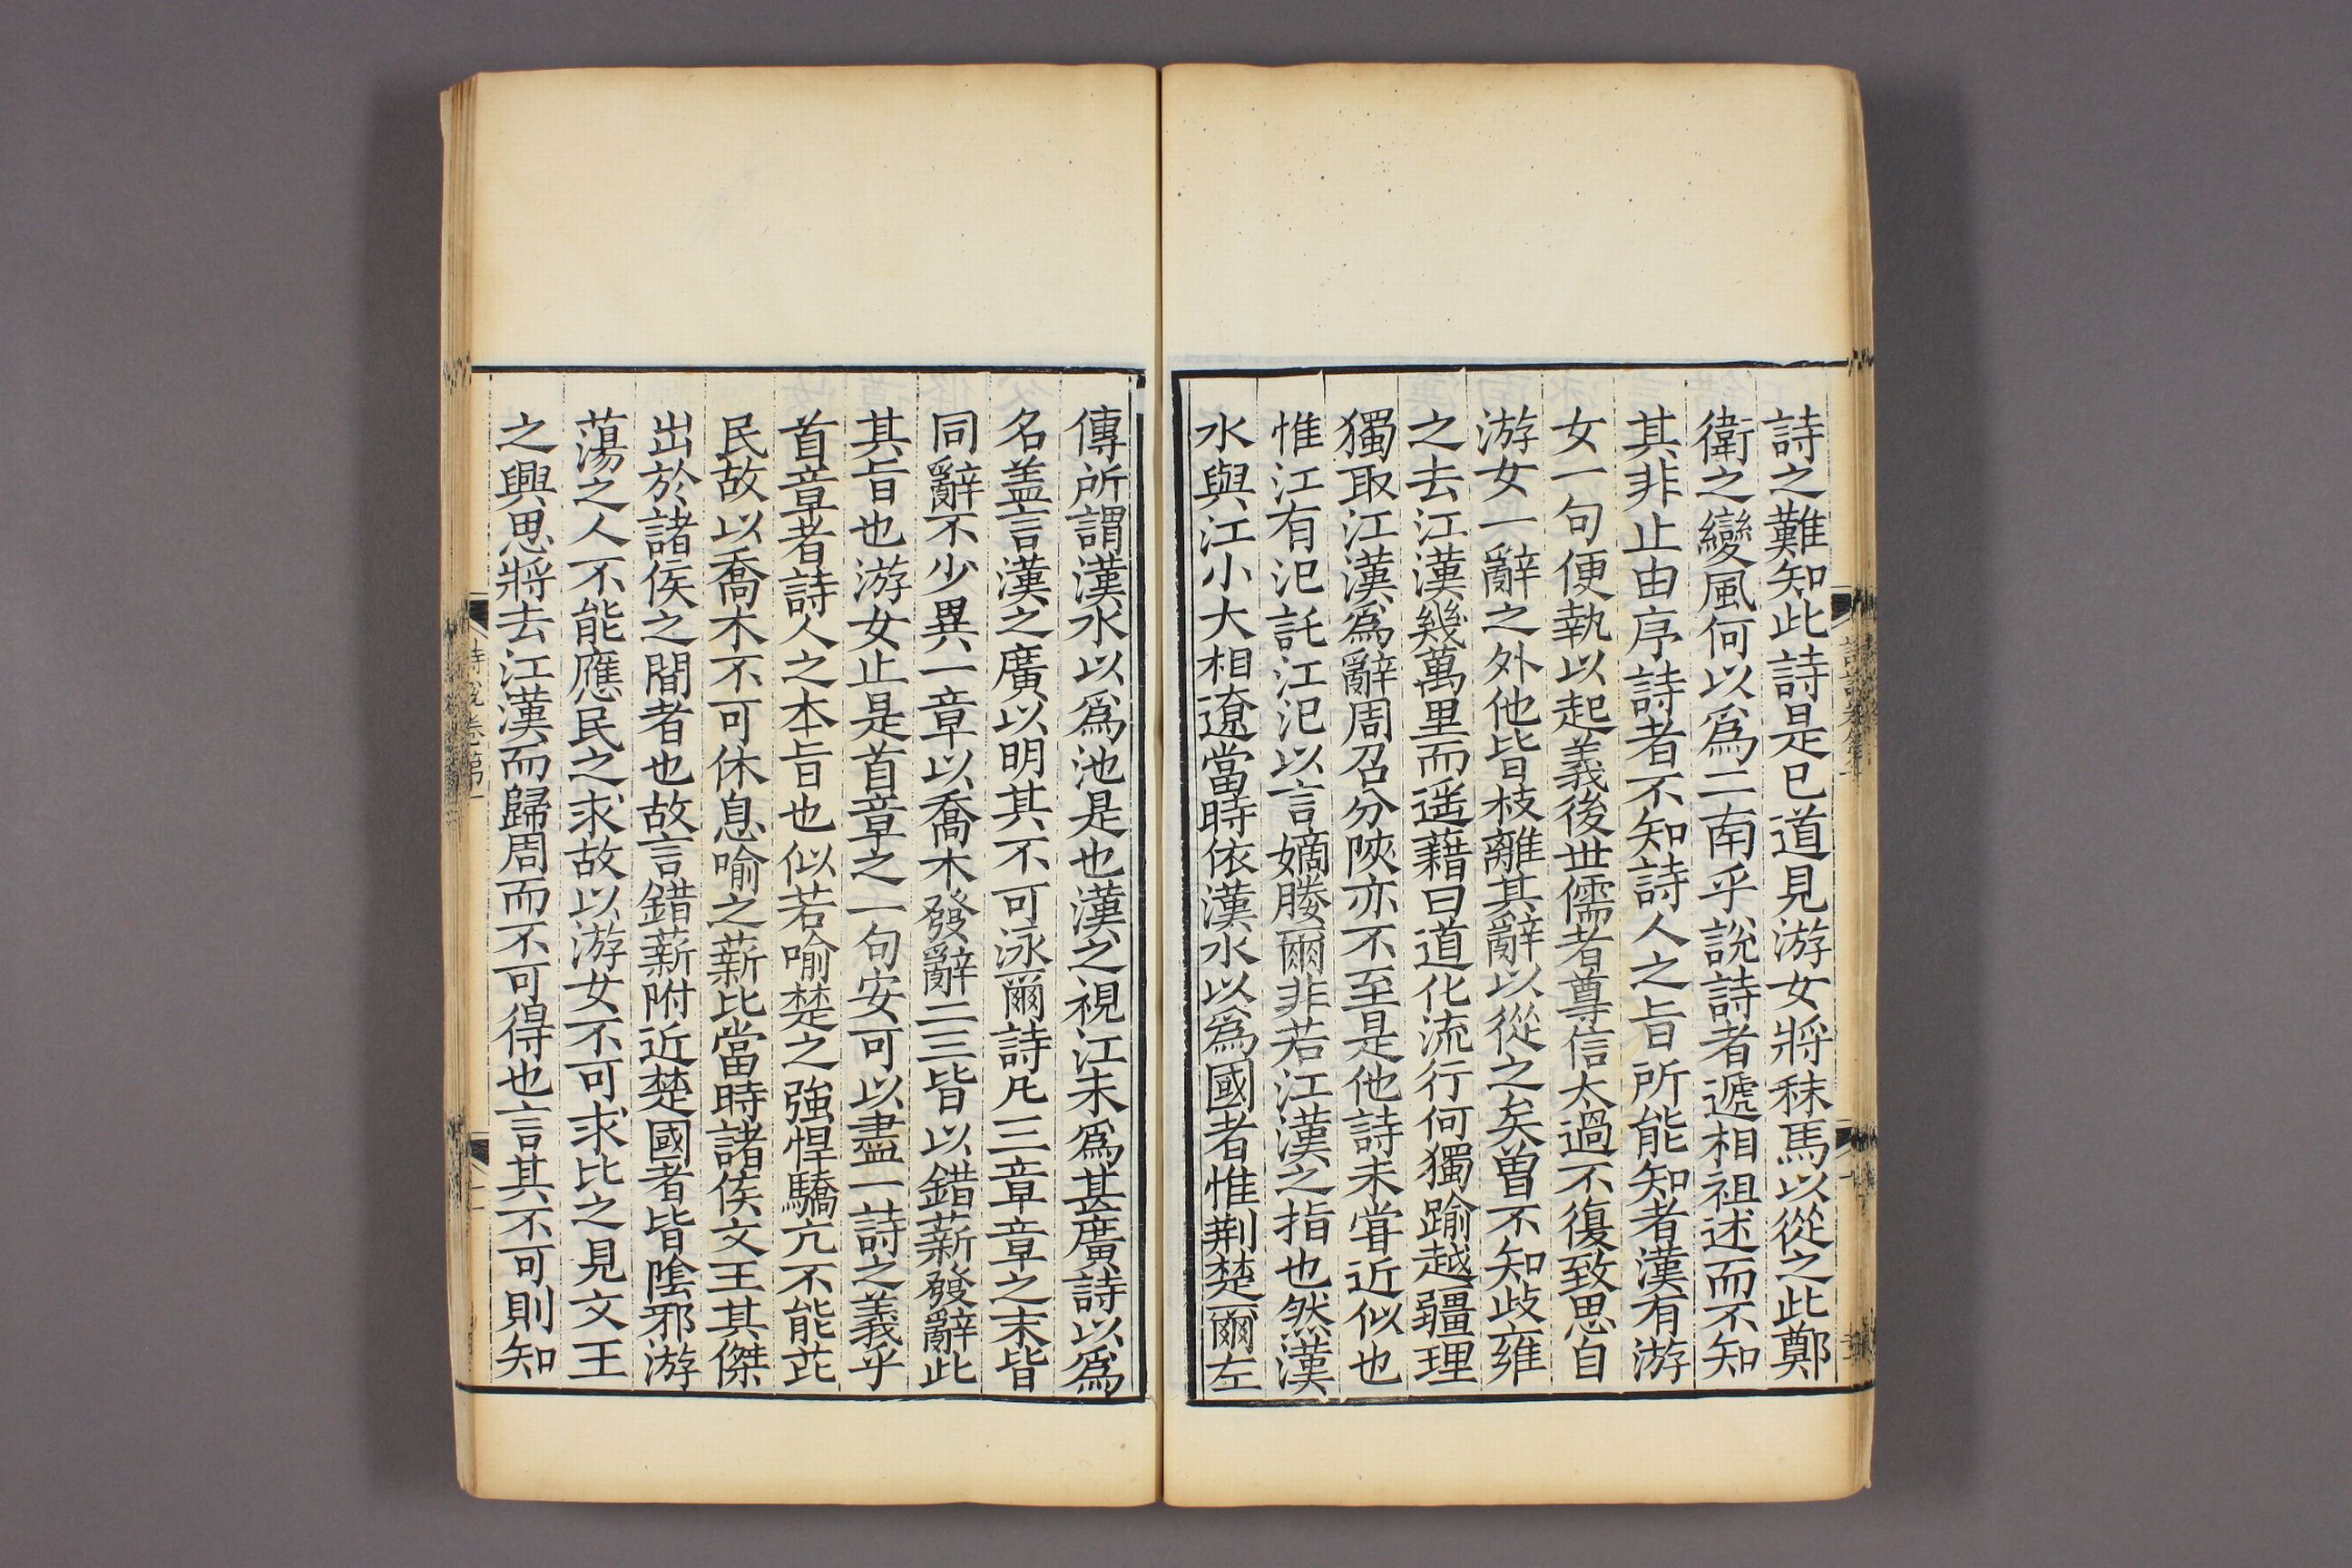 詩之難知此詩是已道見游女將秣馬以從之此鄭
衛之變風何以爲二南乎說詩者遞相祖述而不知
其非止由序詩者不知詩人之旨所能知者漢有游
女一句便執以起義後世儒者尊信太過不復致思自
游女一辭之外他皆枝離其辭以從之矣曽不知歧雍
之去江漢幾萬里而遥藉曰道化流行何獨踰越疆理
獨取江漢爲辭周召分陜亦不至是他詩未甞近似也
惟江有汜託江汜以言嫡媵爾非若江漢之指也然漢
水與江小大相遼當時依漢水以爲國者惟荆楚爾左
傳所謂漢水以爲池是也漢之視江未爲甚廣詩以爲
名盖言漢之廣以明其不可泳爾詩凡三章章之末皆
同辭不少異一章以喬木發辭二三皆以錯薪發辭此
其旨也游女止是首章之一句安可以盡一詩之義乎
首章者詩人之本旨也似若喻楚之強悍驕亢不能芘
民故以喬木不可休息喻之薪比當時諸侯文王其傑
出於諸侯之間者也故言錯薪附近楚國者皆隂邪游
蕩之人不能應民之求故以游女不可求比之見文王
之興思將去江漢而歸周而不可得也言其不可則知
詩說卷第一